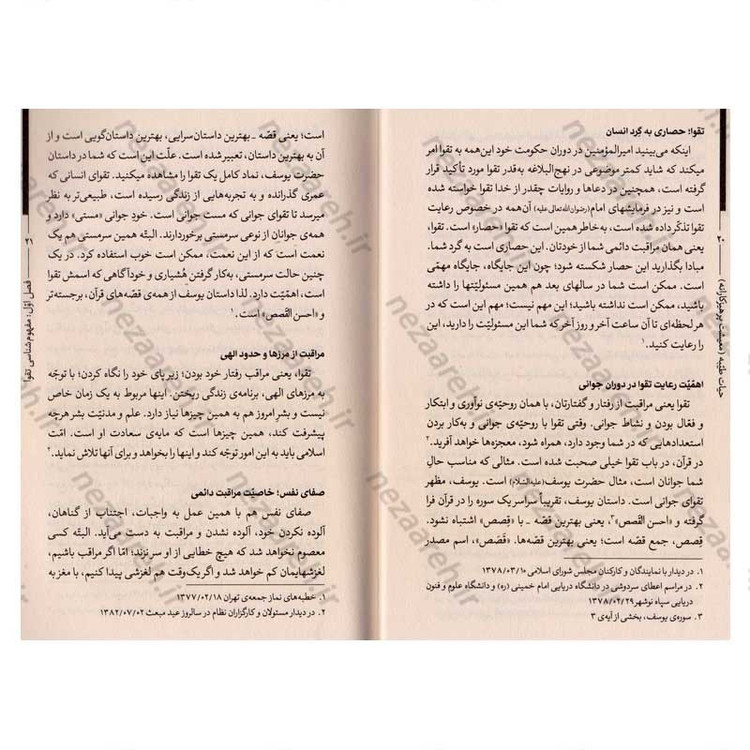 تقوا؛ حصاری به گِرد انسان
اینکه می‌بینید امیرالمؤمنین در دوران حکومت خود این‌همه به تقوا امر
میکند که شاید کمتر موضوعی در نهج‌البلاغه به‌قدر تقوا مورد تأکید قرار
گرفته است، همچنین در دعاها و روایات چقدر از خدا تقوا خواسته شده
است و نیز در فرمایشهای امام (رضوان‌الله‌تعالی‌علیه) آن‌همه در خصوص رعایت
تقوا تذکّر داده شده است، به‌خاطر همین است که تقوا «حصار» است. تقوا،
یعنی همان مراقبت دائمی شما از خودتان. این حصاری است به گرد شما.
مبادا بگذارید این حصار شکسته شود؛ چون این جایگاه، جایگاه مهمّی
است. ممکن است شما در سالهای بعد هم همین مسئولیّتها را داشته
باشید، ممکن است نداشته باشید؛ این مهم نیست؛ مهم این است که
هر لحظه‌ای تا آن ساعت آخر و روز آخر که شما این مسئولیّت را دارید، این
را رعایت کنید.۱
اهمّیّت رعایت تقوا در دوران جوانی
تقوا یعنی مراقبت از رفتار و گفتارتان، با همان روحیّه‌ی نوآوری و ابتکار
و فعّال بودن و نشاط جوانی. وقتی تقوا با روحیّه‌ی جوانی و به‌کار بردن
استعدادهایی که در شما وجود دارد، همراه شود، معجزه‌ها خواهد آفرید.۲
در قرآن، در باب تقوا خیلی صحبت شده است. مثالی که مناسب حالِ
شما جوانان است، مثال حضرت یوسف (علیه‌السّلام) است. یوسف، مظهر
تقوای جوانی است. داستان یوسف، تقریباً سراسر یک سوره را در قرآن فرا
گرفته و «احسن القَصص»۳، یعنی بهترین قصّه ـ با «قِصص» اشتباه نشود.
قِصص، جمع قصّه است؛ یعنی بهترین قصّه‌ها. «قَصَص»، اسم مصدر
۱. در دیدار با نمایندگان و کارکنان مجلس شورای اسلامی ۱۳۷۸/۰۳/۱۰
۲. در مراسم اعطای سردوشی در دانشگاه دریایی امام خمینی (ره) و دانشگاه علوم و فنون
دریایی سپاه نوشهر ۱۳۷۸/۰۲/۲۹
۳. سوره‌ی یوسف، بخشی از آیه‌ی ۳
۲۰
حیات طیّبه (معیشت پرهیزکارانه)
است؛ یعنی قصّه ـ بهترین داستان‌سرایی، بهترین داستان‌گویی است و از
آن به بهترین داستان، تعبیر شده است. علّت این است که شما در داستان
حضرت یوسف، نماد کامل یک تقوا را مشاهده میکنید. تقوای انسانی که
عمری گذرانده و به تجربه‌هایی از زندگی رسیده است، طبیعی‌تر به نظر
میرسد تا تقوای جوانی که مست جوانی است. خودِ جوانی «مستی» دارد و
همه‌ی جوانان از نوعی سرمستی برخوردارند. البتّه همین سرمستی هم یک
نعمت است که از این نعمت، ممکن است خوب استفاده کرد. در یک
چنین حالت سرمستی، به‌کار گرفتن هُشیاری و خودآگاهی که اسمش تقوا
است، اهمّیّت دارد. لذا داستان یوسف از همه‌ی قصّه‌های قرآن، برجسته‌تر
و «احسن القَصص» است.۱
مراقبت از مرزها و حدود الهی
تقوا، یعنی مراقب رفتار خود بودن؛ زیر پای خود را نگاه کردن؛ با توجّه
به مرزهای الهی، برنامه‌ی زندگی ریختن. اینها مربوط به یک زمان خاص
نیست و بشرِ امروز هم به همین چیزها نیاز دارد. علم و مدنیّت بشر هرچه
پیشرفت کند، همین چیزها است که مایه‌ی سعادت او است. امّت
اسلامی باید به این امور توجّه کند و اینها را بخواهد و برای آنها تلاش نماید.۲
صفای نفس؛ خاصیّت مراقبت دائمی
صفای نفس هم با همین عمل به واجبات، اجتناب از گناهان،
آلوده نکردن خود، آلوده نشدن و مراقبت به دست می‌آید. البتّه کسی
معصوم نخواهد شد که هیچ خطایی از او سر نزند؛ امّا اگر مراقب باشیم،
لغزشهایمان کم خواهد شد و اگر یک‌وقت هم لغزشی پیدا کنیم، با مغز به
۱. خطبه‌های نماز جمعه‌ی تهران ۱۳۷۷/۰۲/۱۸
۲. در دیدار مسئولان و کارگزاران نظام در سالروز عید مبعث ۱۳۸۲/۰۷/۰۲
۲۱
فصل اوّل: مفهوم‌شناسی تقوا
nezaareh.ir